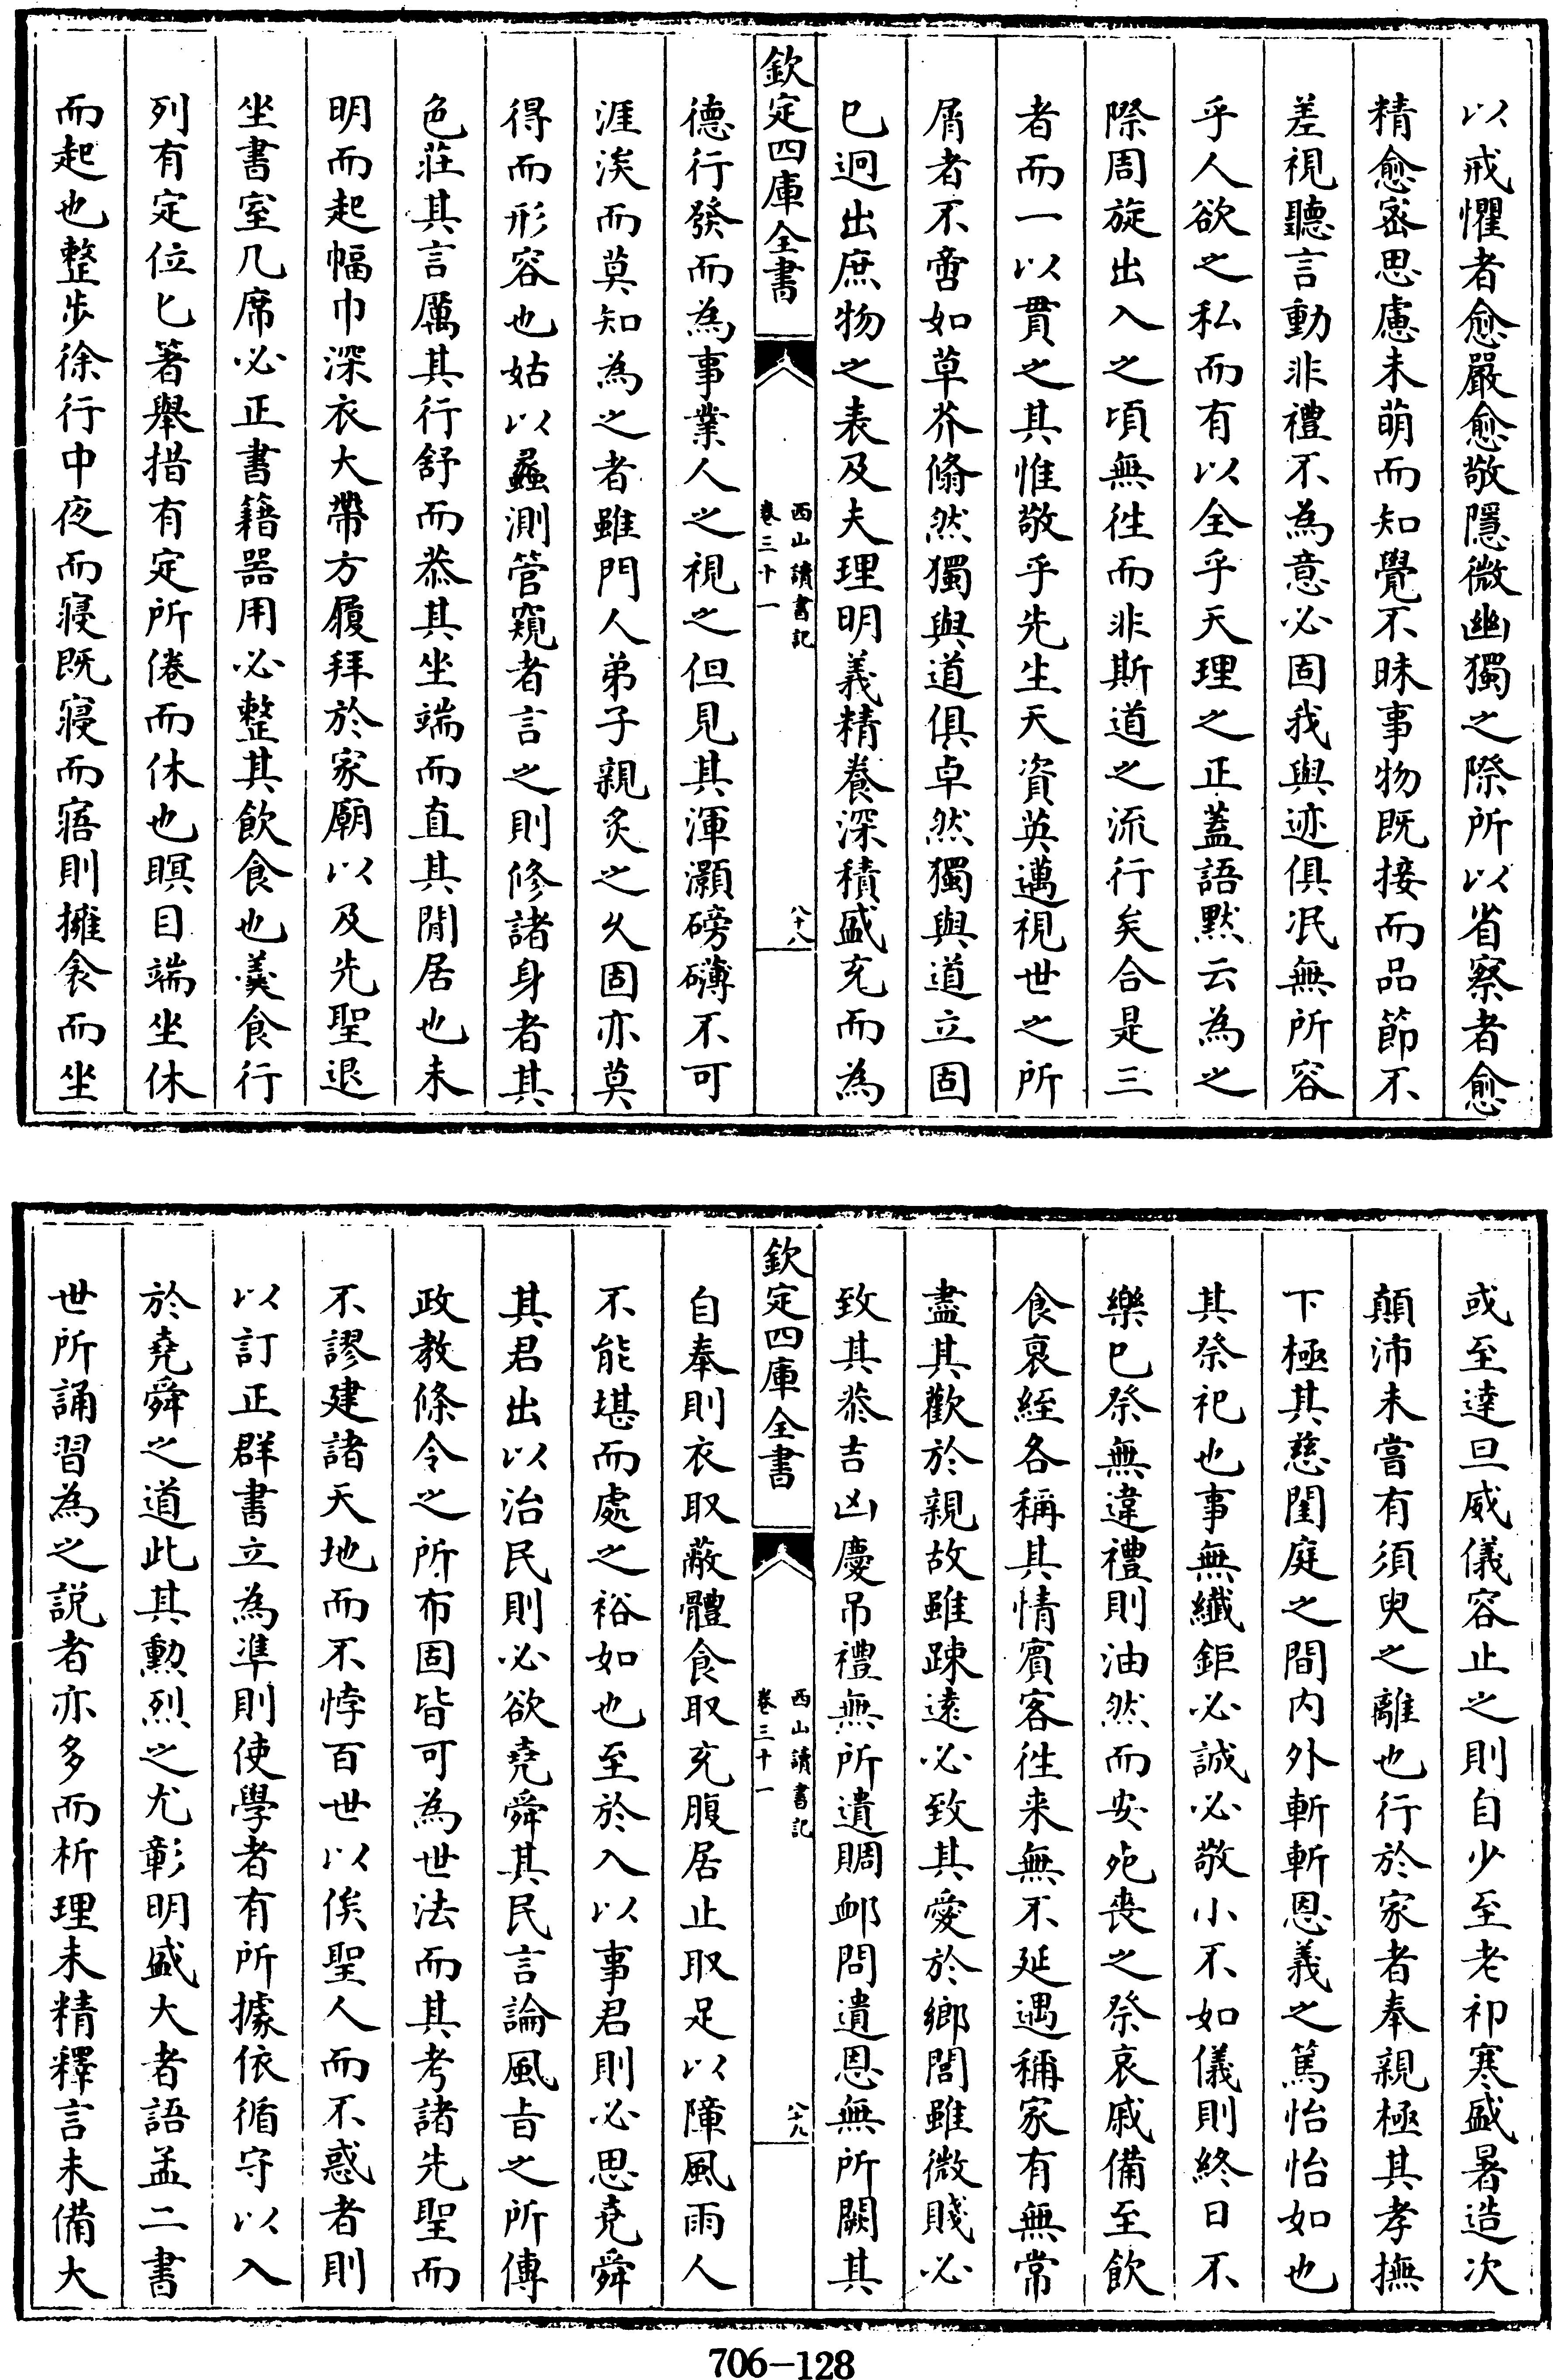 以戒懼者愈嚴愈敬隱微幽獨之際所以省察者愈
精愈宻思慮未萌而知覺不昧事物既接而品節不
差視聽言動非禮不為意必固我與迹俱泯無所容
乎人欲之私而有以全乎天理之正蓋語黙云為之
際周旋出入之頃無徃而非斯道之流行矣合是三
者而一以貫之其惟敬乎先生天資英邁視世之所
屑者不啻如草芥翛然獨與道俱卓然獨與道立固
已迥出庶物之表及夫理明義精養深積盛充而為
欽定四庫全書
西山讀書記
卷三十一
八十八
德行發而為事業人之視之但見其渾灝磅礴不可
涯涘而莫知為之者雖門人弟子親炙之久固亦莫
得而形容也姑以蠡測管窺者言之則修諸身者其
色莊其言厲其行舒而恭其坐端而直其閒居也未
明而起幅巾深衣大帶方履拜於家廟以及先聖退
坐書室几席必正書籍器用必整其飲食也羮食行
列有定位匕箸舉措有定所倦而休也瞑目端坐休
而起也整步徐行中夜而寢既寢而寤則擁衾而坐
或至達旦威儀容止之則自少至老祁寒盛暑造次
顛沛未嘗有須臾之離也行於家者奉親極其孝撫
下極其慈閨庭之間内外斬斬恩義之篤怡怡如也
其祭祀也事無纎鉅必誠必敬小不如儀則終日不
樂已祭無違禮則油然而安死喪之祭哀戚備至飲
食衰絰各稱其情賓客徃来無不延遇稱家有無常
盡其歡於親故雖踈遠必致其愛於鄉閭雖微賤必
致其恭吉凶慶吊禮無所遺賙䘏問遺恩無所闕其
欽定四庫全書
西山讀書記
卷三十一
八十九
自奉則衣取蔽體食取充腹居止取足以障風雨人
不能堪而處之裕如也至於入以事君則必思堯舜
其君出以治民則必欲堯舜其民言論風旨之所傳
政教條令之所布固皆可為世法而其考諸先聖而
不謬建諸天地而不悖百世以俟聖人而不惑者則
以訂正群書立為準則使學者有所據依循守以入
於堯舜之道此其勲烈之尤彰明盛大者語孟二書
世所誦習為之説者亦多而析理未精釋言未備大
706-128